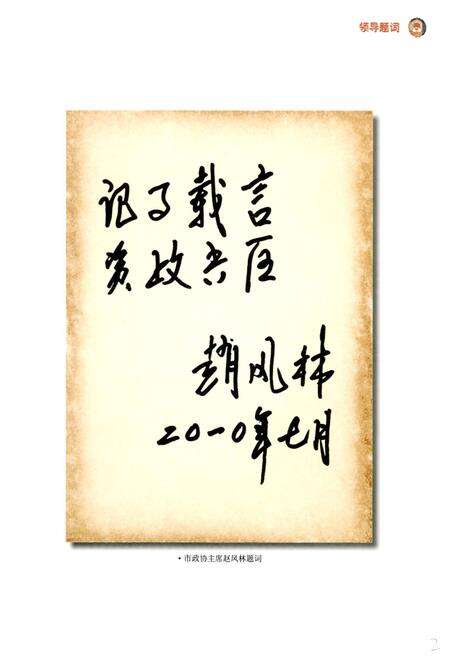 领导题词
记事载言
资政共匡
赵凤林
二〇一〇年七月
·市政协主席赵凤林题词
2